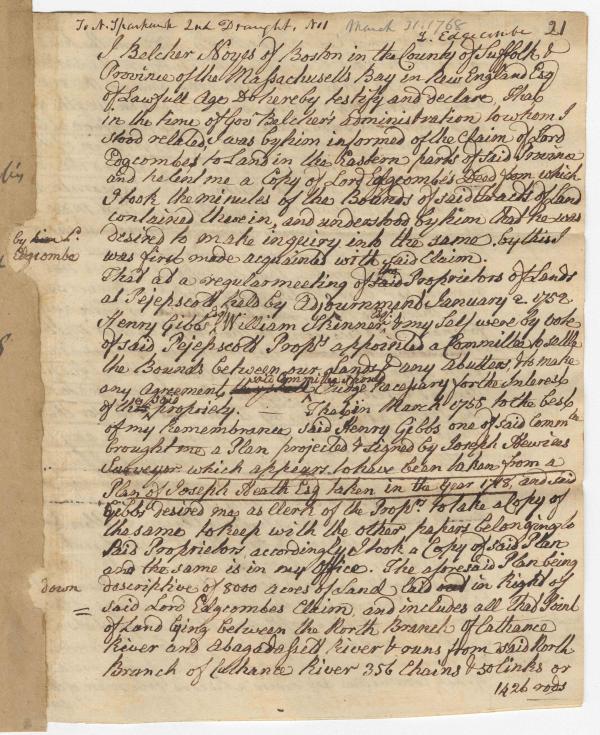 To N. Sparhawk 2nd Draught, No 1 March 31. 1768 21
L. Edgcombe
I Belcher Noyes of Boston in the County of Suffolk &
Province of the Massachusetts Bay in New England Esq
of Lawfull Age Do hereby testify and declare, That
in the time of Govr Belchers administration to whom I
stood related, I was by him informed of the Claim of Lord
Edgcombes to Land in the Eastern parts of said Province
and he lent me a Copy of Lord Edgcombes Deed from which
I took the minutes of the Bounds of said Tract of Land
contained therein, and understood by him that he was
by him Ld Edgcombe
desired to make inquiry into the same, by this I
was first made acquainted with said Claim.
That at a regular meeting of the said Proprietors of Lands
at Pejepscott held by Adjournment January 2. 1752
Henry Gibbs Esq, William Skinner Esq & my Self were by vote
of said Pejepscott Proprs appointed a Committee to settle
the Bounds between our lands & any abutters & to make
any Agreement said Committee should Judge necessary for the Interest
of the said propriety. That in March 1755 to the best
of my Remembrance said Henry Gibbs one of said Commtee
brought me a Plan projected & signed by Joseph Hewins
Surveyor which appears to have been taken from a
Plan of Joseph Heath Esq taken in the year 1718, and said
Gibbs desired me as Clerk of the Proprs to take a Copy of
the same to keep with the other papers belonging to
said Proprietors accordingly I took a Copy of said Plan
and the same is in my office. The aforesaid Plan being
down
descriptive of 8000 acres of Land laid out in Right of
said Lord Edgcombes Claim, and includes all that Point
of Land lying between the North Branch of Cathance
River and Abagadassett River & runs from said North
Branch of Cathance River 356 Chains & 50 links or
1426 rods